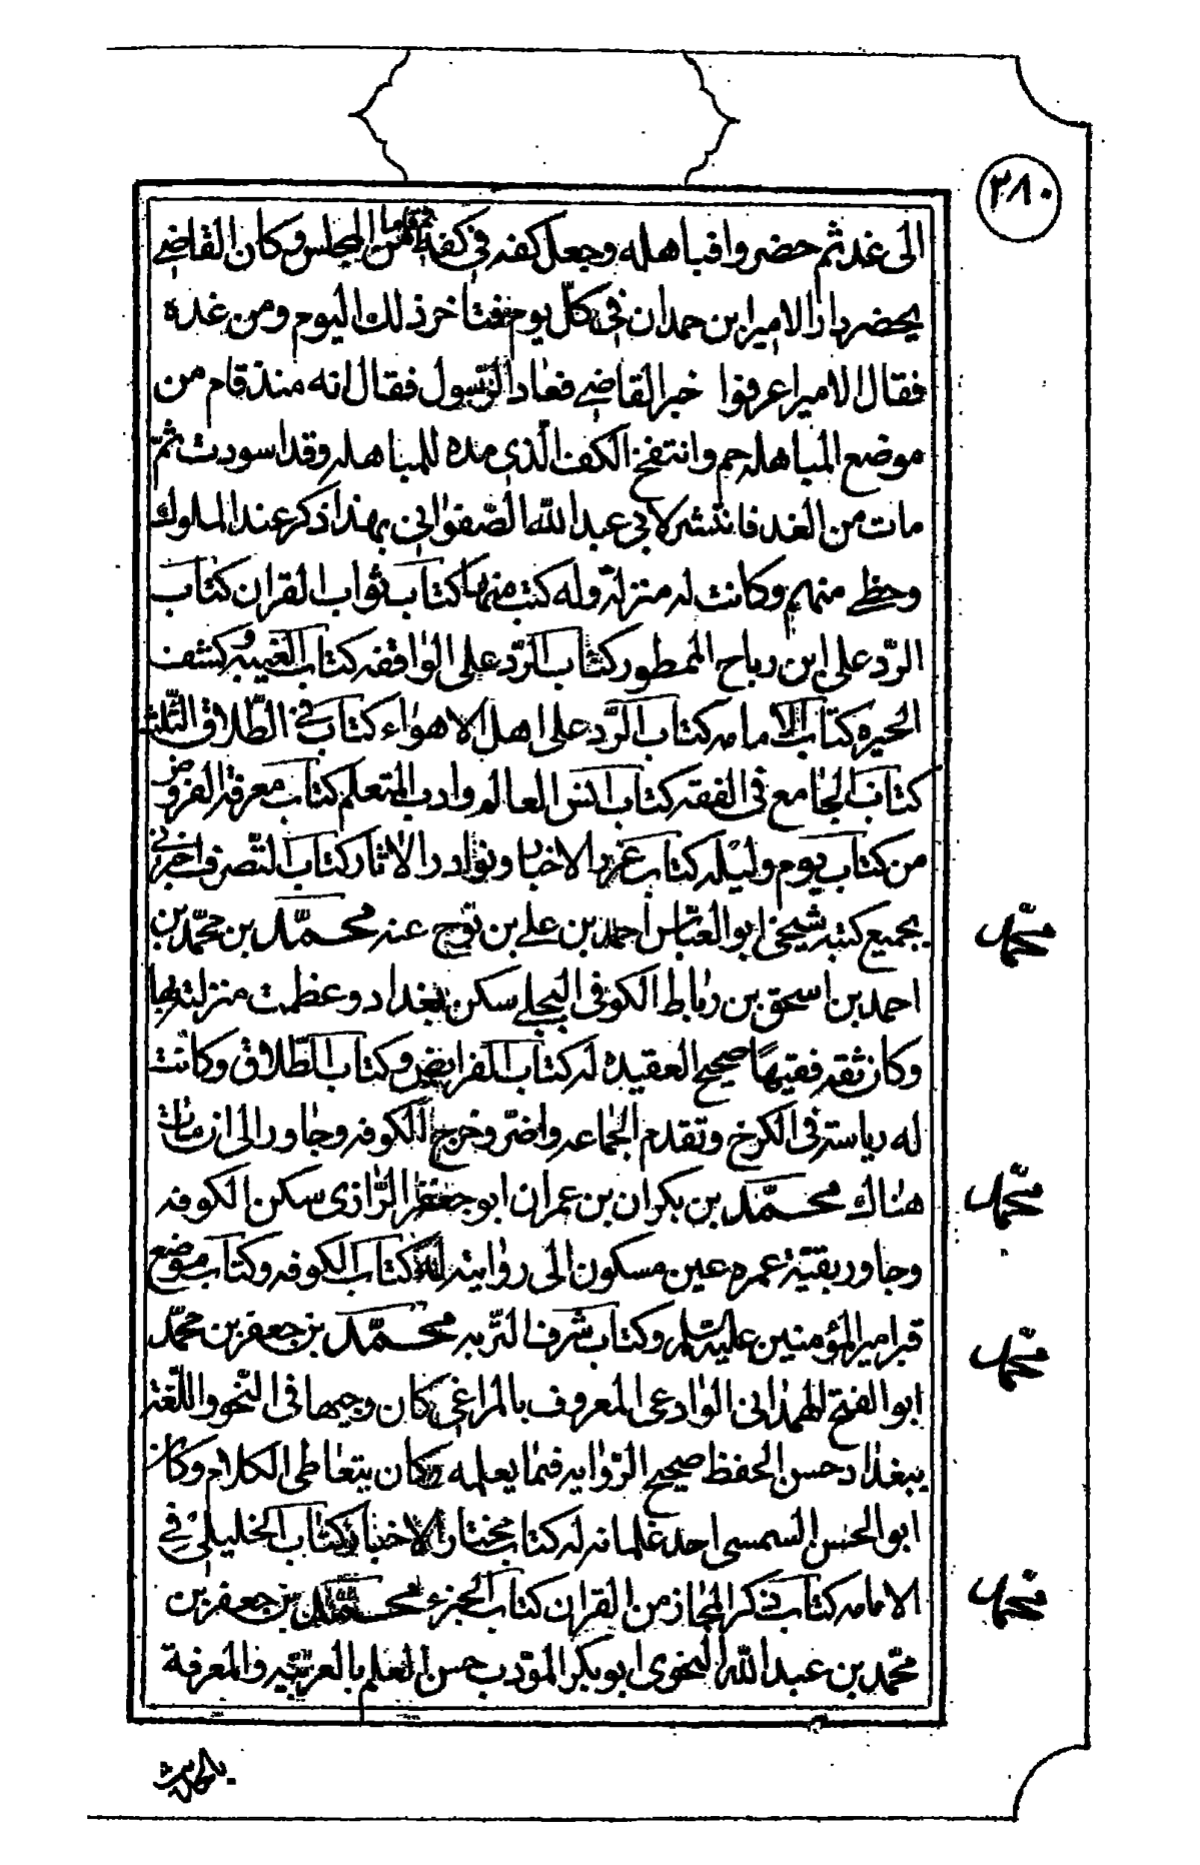 ٢٨٠
الى غد ثم حضروا فباهله وجعل كفه فى كفه ثم قاما من المجلس وكان القاضے
يحضر دار الامير ابن حمدان فى كلّ يوم فتاخر ذلك اليوم ومن غده
فقال الامير اعرفوا خبر القاضے فعاد الرّسول فقال انه منذ قام من
موضع المباهله حم وانتفخ الكف الّذى مده للمباهله وقد اسودت ثمّ
مات من الغد فانتشر لابى عبد الله الصّفوانى بهذا ذكر عند الملوك
وحظى منهم وكانت له منزلة وله كتب منها كتاب ثواب القران كتاب
الرّد على ابن رباح الممطور كتاب الرّد على الواقفه كتاب الغيبه وكشف
الحيره كتاب الامامه كتاب الرّد على اهل الاهواء كتاب فى الطّلاق الثّلث
كتاب الجامع فى الفقه كتاب انس العالم وادب المتعلم كتاب معرفة الفروض
من كتاب يوم وليله كتاب غرر الاخبار ونوادر الاثار كتاب التّصرف اخبرنى
بجميع كتبه شيخى ابو العبّاس احمد بن على بن نوح عنه محمّد بن محمّد بن
احمد بن اسحق بن رباط الكوفى البجلے سكن بغداد وعظمت منزلته بها
وكان ثقه فقيها صحيح العقيده له كتاب الفرايض وكتاب الطّلاق وكانت
له رياسته فى الكرخ وتقدم الجماعه واضرّ وخرج الى الكوفه وجاور الى ان مات
هناك محمّد بن بكران بن عمران ابو جعفر الرّازى سكن الكوفه
وجاور بقيّة عمره عين مسكون الى روايته له كتاب الكوفه وكتاب موضع
قبر امير المؤمنين عليه السلم وكتاب شرف التّربه محمّد بن جعفر بن محمّد
ابو الفتح الهمدانى الوادعى المعروف بالمراغى كان وجيها فى النّحو واللّغة
ببغداد حسن الحفظ صحيح الرّوايه فيما يعلمه وكان يتعاطى الكلام وكان
ابو الحسن السمسمى احد غلمانه له كتاب مختار الاخبار كتاب الخليلى فے
الامامه كتاب ذكر المجاز من القران كتاب الجزء محمّد بن جعفر بن
محمّد بن عبد الله النحوى ابو بكر المؤدب حسن العلم بالعربيّه والمعرفة
محمّد
محمّد
محمّد
محمّد
بالحديث